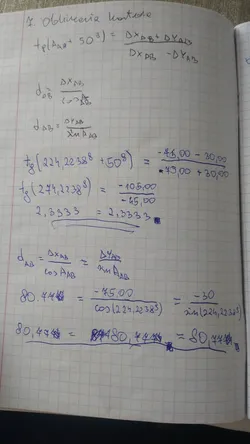 1 Obliczenia kontrolne
tg(A_AB + 50^g) = ΔX_AB + ΔY_AB / ΔX_AB - ΔY_AB
d_AB = ΔX_AB / cos A_AB
d_AB = ΔY_AB / sin A_AB
tg(224,2238^g + 50^g) = -75,00 - 30,00 / -75,00 + 30,00
tg(274,2238^g) = -105,00 / -45,00
2,3333 = 2,3333
d_AB = ΔX_AB / cos A_AB = ΔY_AB / sin A_AB
80.77 = -75.00 / cos(224,2238^g) = -30 / sin(224,2238^g)
80,77 = 80,77 = 80,77